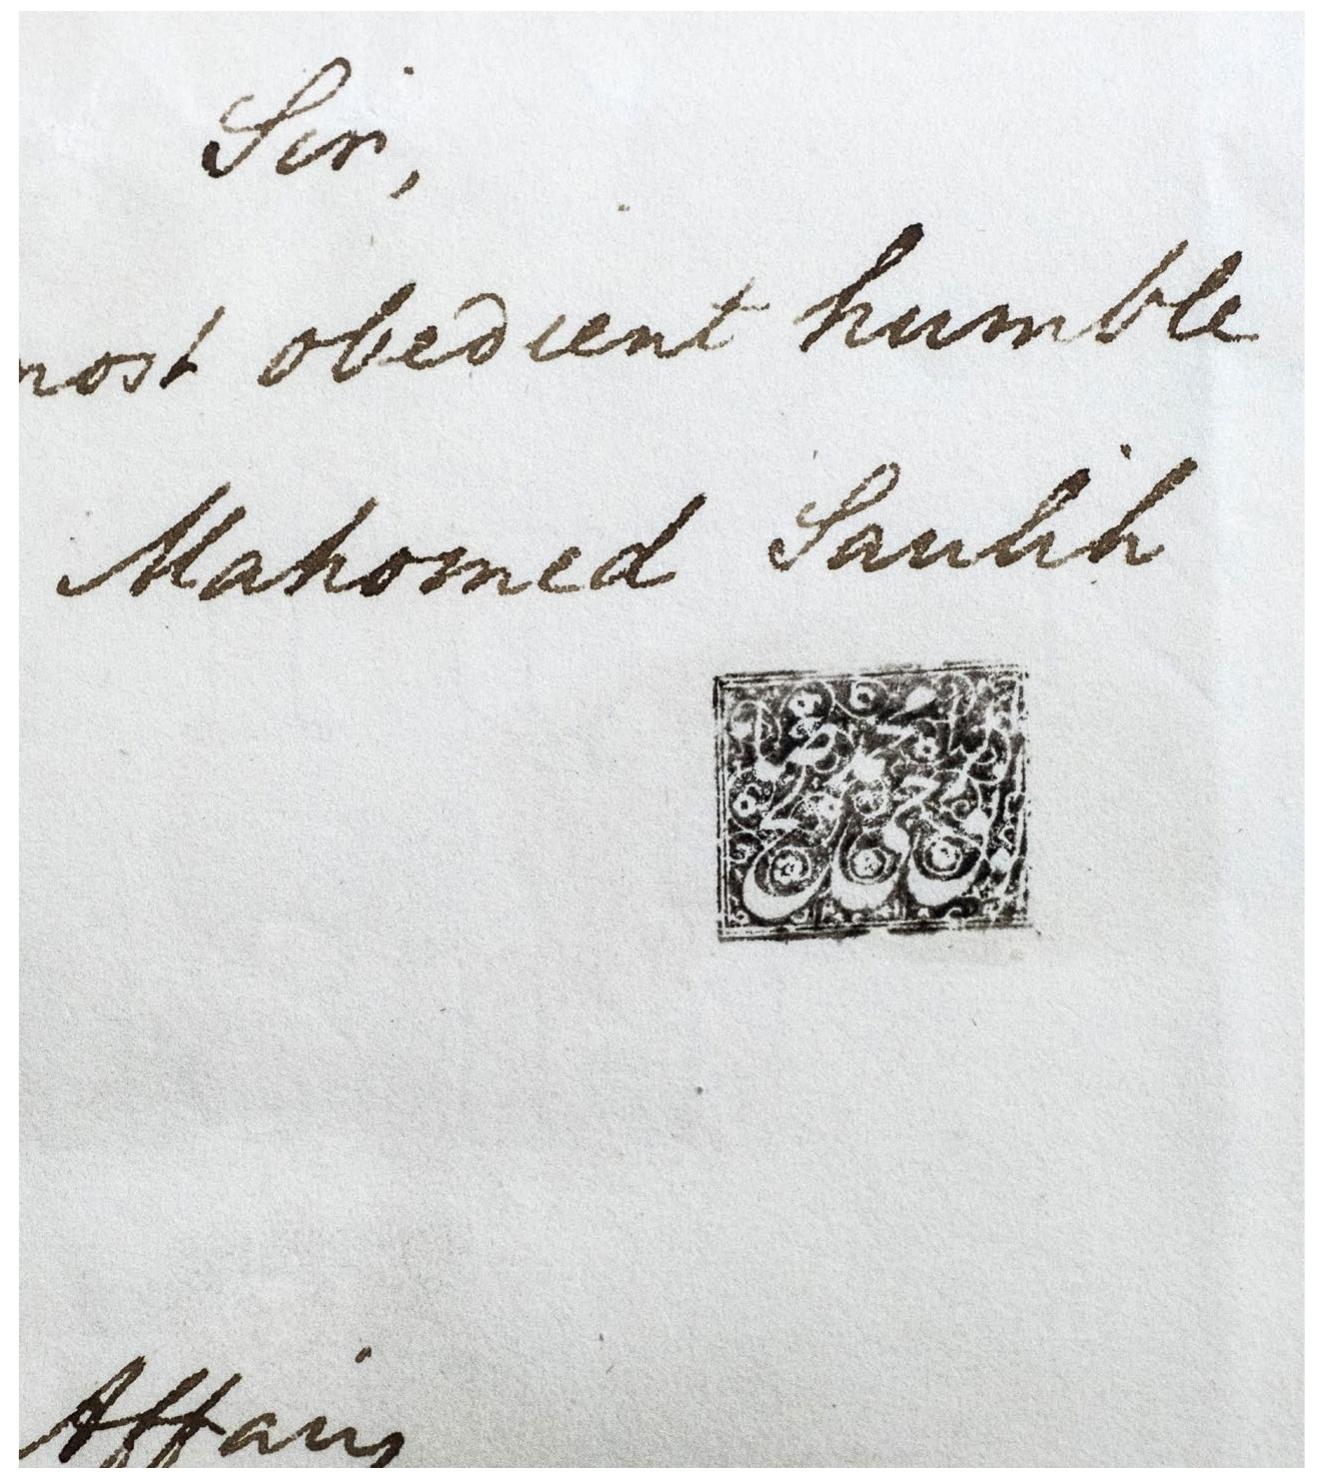 Sir,
most obedient humble
Mahomed Saulih
Affairs